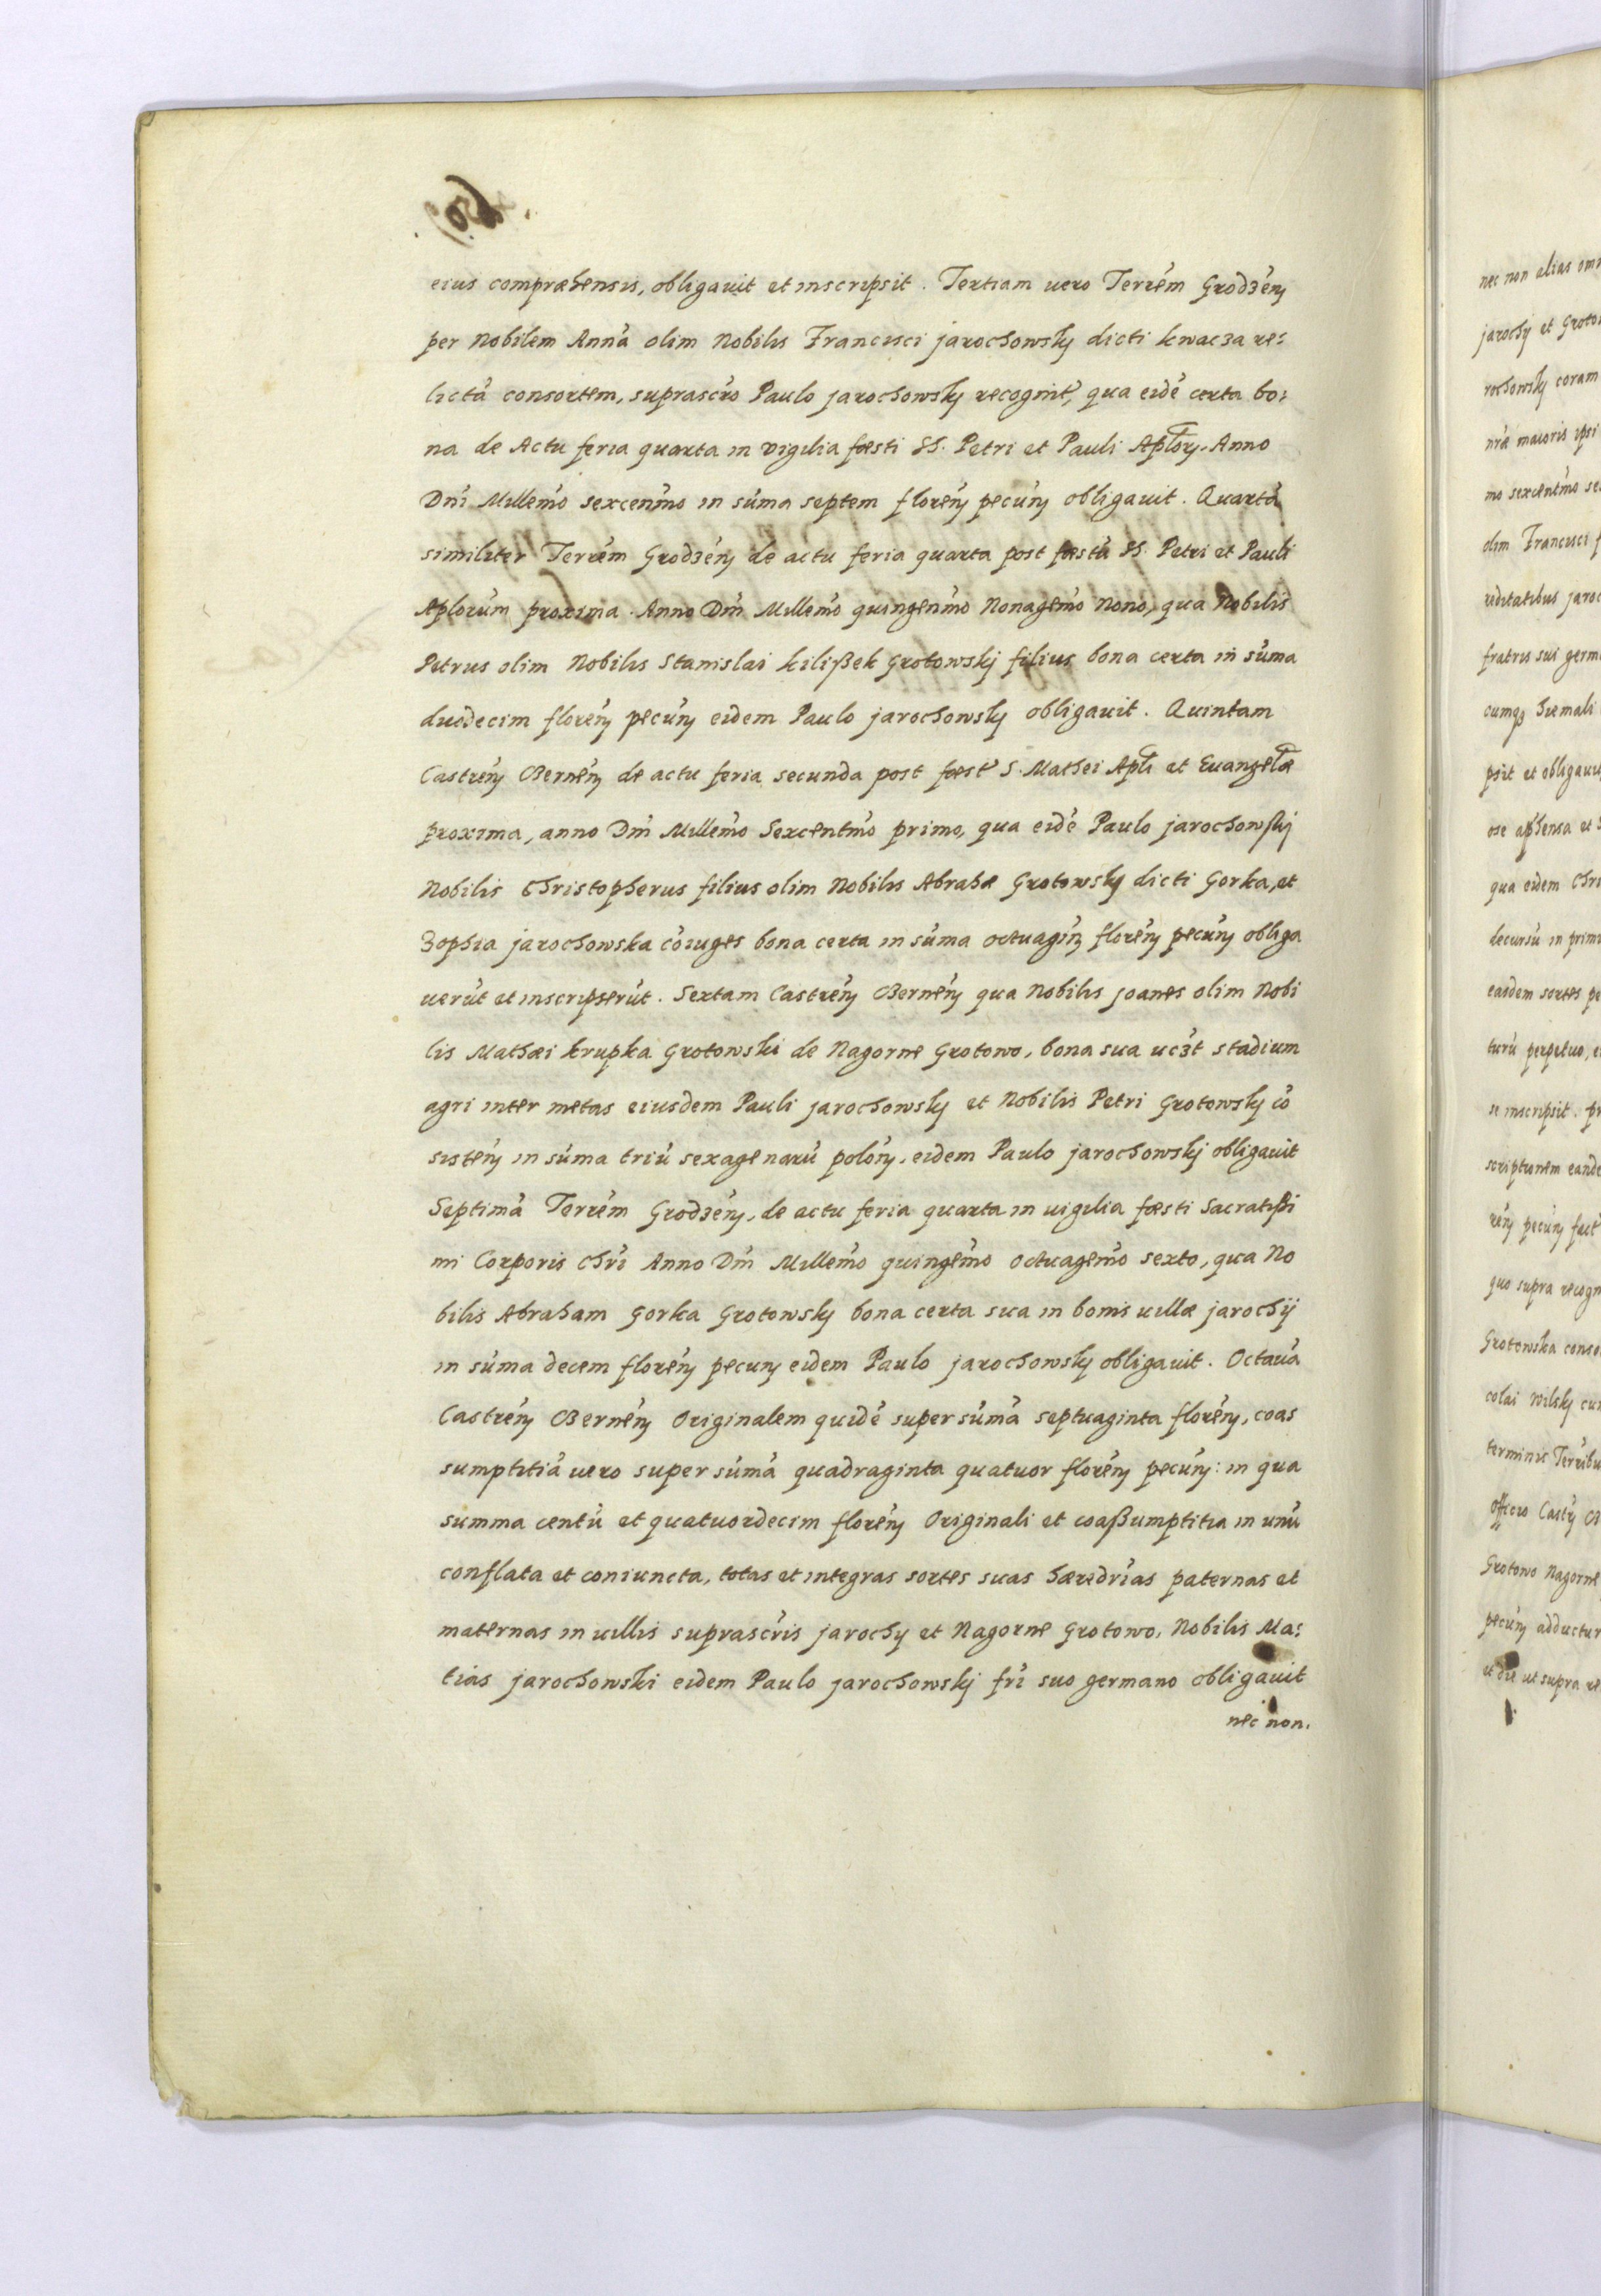 eius compræhensis, obligauit et inscripsit. Tertiam uero Terrēm Grodzēn̄
per Nobilem Annā olim Nobilis Francisci jarochowskỹ dicti kwacza re:
lictā consortem, suprascr̄o Paulo jarochowskỹ recognit̄, qua eidē certa bo:
na de Actu feria quarta in vigilia fæsti SS. Petri et Pauli Aplor̄. Anno
Dnī Millem̄o sexcenm̄o in sūma septem florēn̄ pecūn̄ obligauit. Quartā
similiter Terrēm Grodzēn̄ de actu feria quarta post fæstū SS. Petri et Pauli
Aplorūm proxima. Anno Dnī Millem̄o quingenm̄o Nonagem̄o Nono, qua Nobilis
Petrus olim Nobilis Stanislai kilißek Grotowskj filius bona certa in sūma
duodecim florēn̄ pecūn̄ eidem Paulo jarochowskỹ obligauit. Quintam
Castrēn̄ Bernēn̄ de actu feria secunda post fæst̄ S. Mathei Apłi et Euangełæ
proxima, anno Dnī Millem̄o Sexcentm̄o primo, qua eidē Paulo jarochowskj
Nobilis Christopherus filius olim Nobilis Abrahæ Grotowskỹ dicti Gorka, et
Zophia jarochowska cōiuges bona certa in sūma octuagin̄ florēn̄ pecūn̄ obliga
uerūt et inscripserūt. Sextam Castrēn̄ Bernēn̄ qua Nobilis joanes olim Nobi
lis Mathæi krupka Grotowski de Nagorne Grotowo, bona sua uczt̄ stadium
agri inter metas eiusdem Pauli jarochowskỹ et Nobilis Petri Grotowskỹ cō
sistēn̄ in sūma triū sexagenarū polōn̄, eidem Paulo jarochowskj obligauit
Septimā Terrēm Grodzēn̄, de actu feria quarta in uigilia fæsti Sacratißi
mi Corporis Chrī Anno Dnī Millem̄o quingem̄o octuagem̄o sexto, qua No
bilis Abraham Gorka Grotowskỹ bona certa sua in bonis uillæ jarochÿ
in sūma decem florēn̄ pecun̄ eidem Paulo jarochowskỹ obligauit. Octauā
Castrēn̄ Bernēn̄ Originalem quidē super sūmā septuaginta florēn̄, coas
sumptitiā uero super sūmā quadraginta quatuor florēn̄ pecūn̄: in qua
summa centū et quatuordecim florēn̄ Originali et coaßumptitia in unū
conflata et coniuncta, totas et integras sortes suas hæredrīas paternas et
maternas in uillis suprascr̄is jarochy et Nagorne Grotowo, Nobilis Ma:
tias jarochowski eidem Paulo jarochowskj fr̄i suo germano obligauit
nec non.
nec non alias
jarochy et
rochowskỹ coram
nrā maioris ipsi
mo sexcentm̄o
olim Francisci
reditatibus
fratris sui
cumq₃ hiemali
psit et
qua eidem
decursū in
easdem sortes
turū perpetuo,
se inscripsit.
scriptionem
rēn̄ pecūn̄
quo supra
Grotowska
colai Wilskj
terminis
Grotowo Nagorne
pecūn̄
et die ut supra